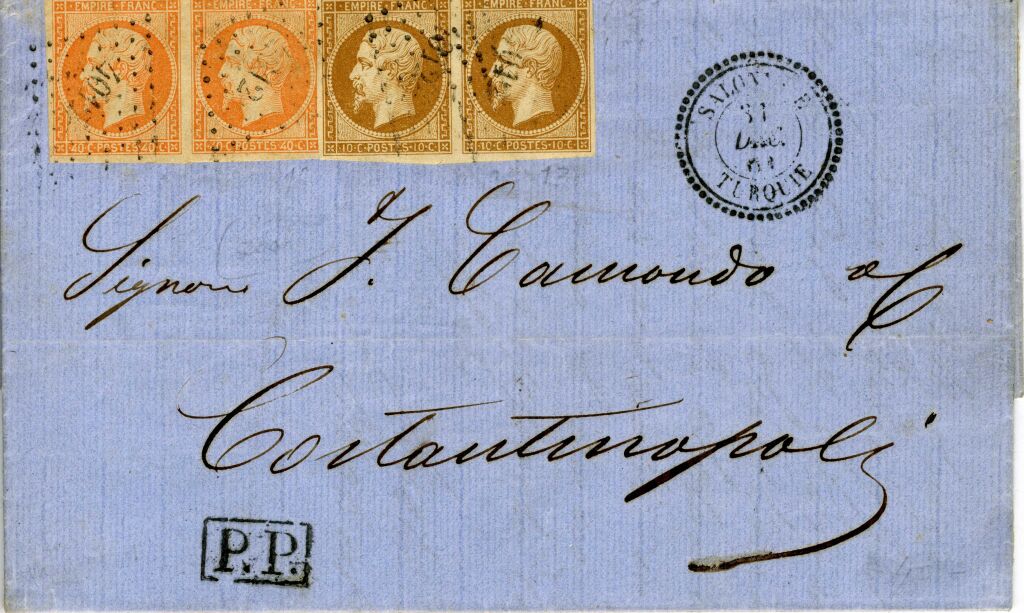 EMPIRE FRANC. EMPIRE FRANC. EMPIRE FRANC. EMPIRE FRANC.
40·C·POSTES·40·C· POSTES·40·C· 10·C·POSTES·10·C· 10·C·POSTES·10·C·
31
TURQUIE
Signori J. Camondo & C
Costantinopoli
P.P.